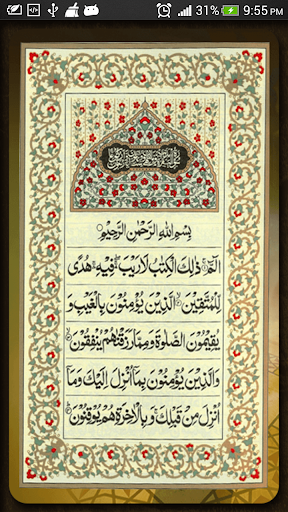 31% 9:55 PM
بِسْمِ اللهِ الرَّحْمٰنِ الرَّحِيْمِ
الٓمّٓ ۚ ذٰلِكَ الْكِتٰبُ لَا رَيْبَ ۛ فِيْهِ ۛ هُدًى
لِّلْمُتَّقِيْنَ ۙ الَّذِيْنَ يُؤْمِنُوْنَ بِالْغَيْبِ وَ
يُقِيْمُوْنَ الصَّلٰوةَ وَمِمَّا رَزَقْنٰهُمْ يُنْفِقُوْنَ ۙ
وَالَّذِيْنَ يُؤْمِنُوْنَ بِمَآ اُنْزِلَ اِلَيْكَ وَمَآ
اُنْزِلَ مِنْ قَبْلِكَ ۚ وَبِالْاٰخِرَةِ هُمْ يُوْقِنُوْنَ ؕ